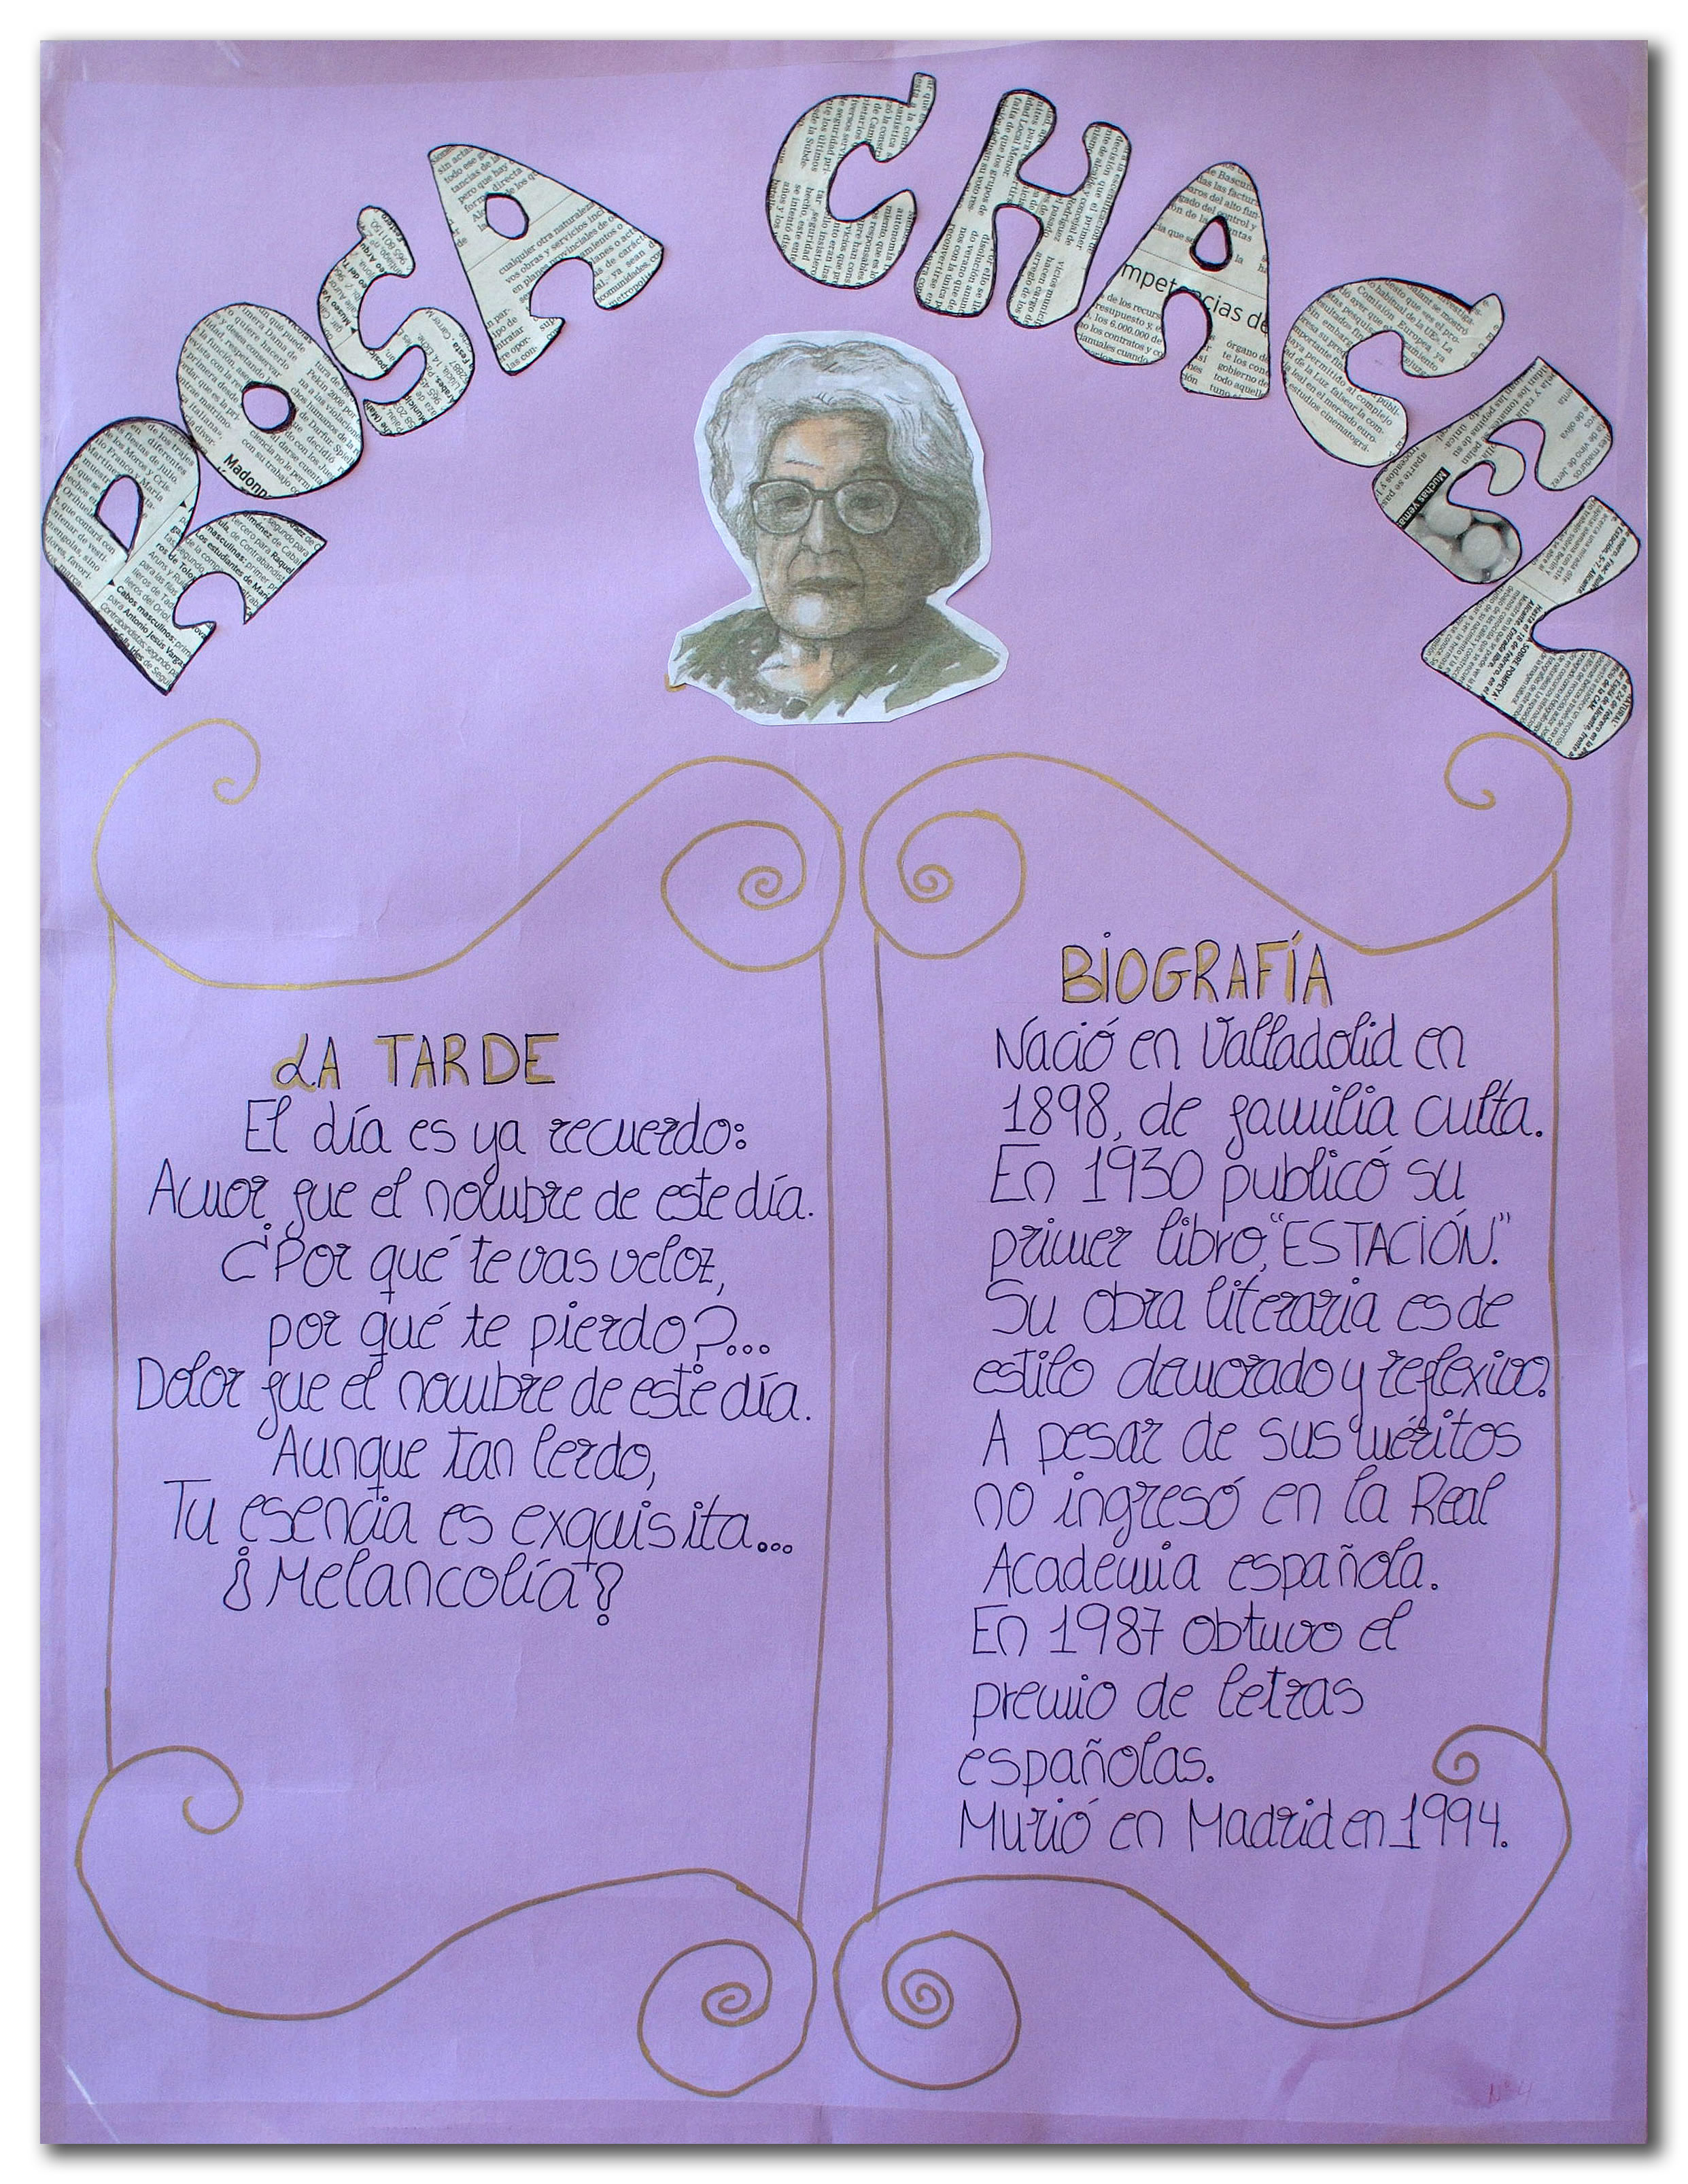 ROSA CHACEL
LA TARDE
El día es ya recuerdo:
Amor fue el nombre de este día.
¿Por qué te vas veloz,
por qué te pierdo?...
Dolor fue el nombre de este día.
Aunque tan lerdo,
Tu esencia es exquisita...
¡Melancolía!
BIOGRAFÍA
Nació en Valladolid en
1898, de familia culta.
En 1930 publicó su
primer libro, "ESTACIÓN."
Su obra literaria es de
estilo demorado y reflexivo.
A pesar de sus méritos
no ingresó en la Real
Academia española.
En 1987 obtuvo el
premio de letras
españolas.
Murió en Madrid en 1994.